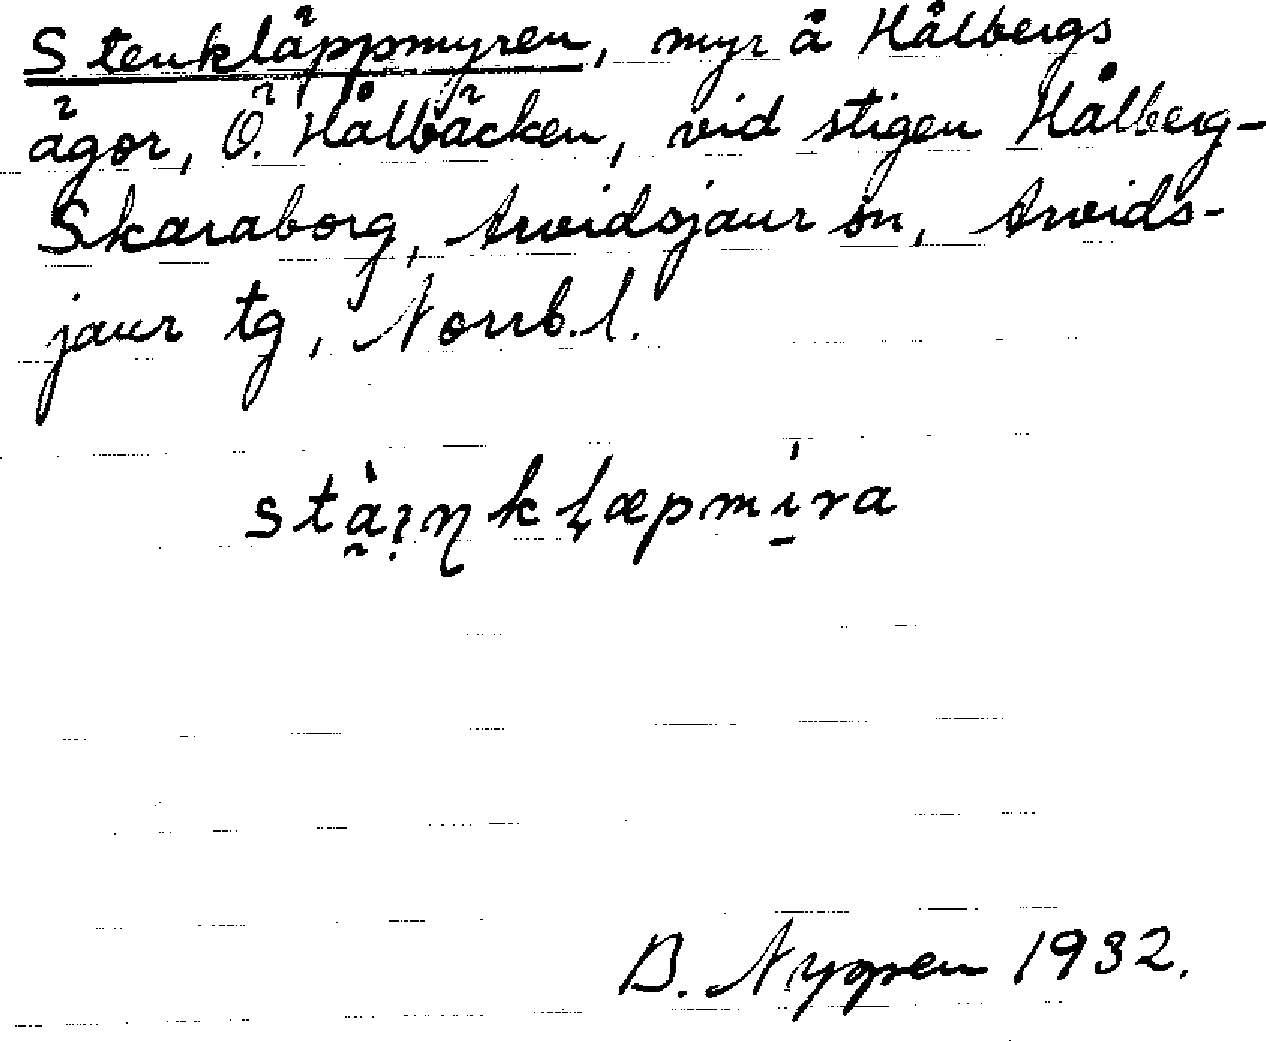 Stenkläppmyren, myr å Hålbergs
ägor, Ö. Hålbäcken, vid stigen Hålberg-
Skaraborg, Arvidsjaur sn, Arvids-
jaur tg, Norrb. l.
D. Nygren 1932.